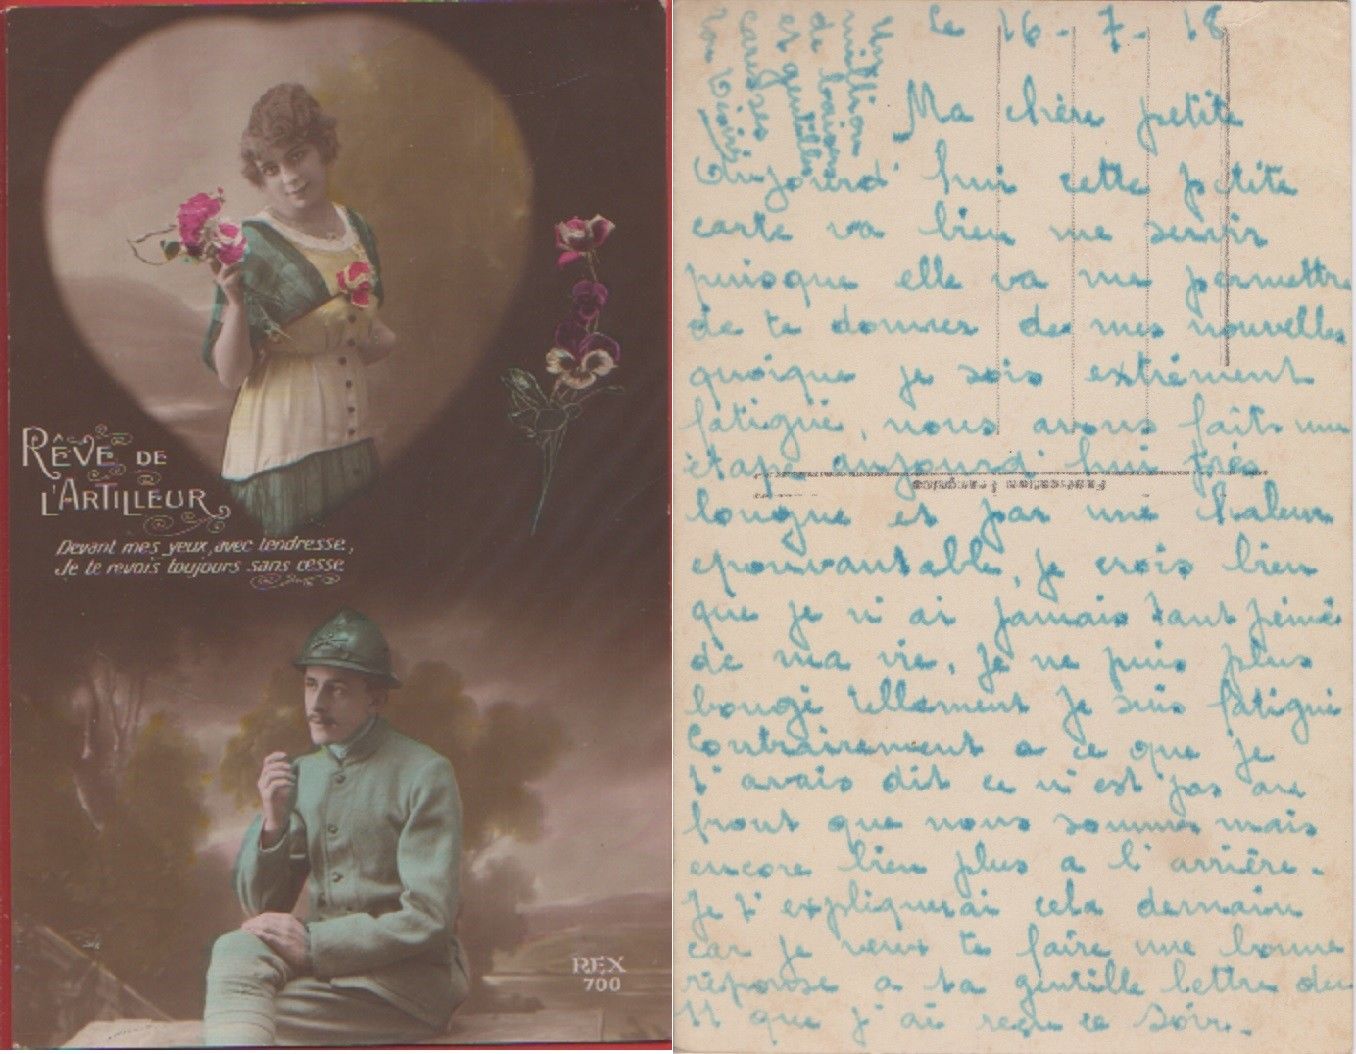 RÊVE DE
L'ARTILLEUR
Devant mes yeux, avec tendresse,
Je te revois toujours sans cesse
REX
700
Le 16-7-18
Ma chère petite
Aujourd'hui cette petite
carte va bien me servir
puisque elle va me permettre
de te donner de mes nouvelles
quoique je sois extrèment
fatigué, nous avons faits une
étape aujourd'hui très
longue et par une chaleur
epouvantable, je crois bien
que je n'ai jamais tant peiné
de ma vie, je ne puis plus
bougé tellement je suis fatigué
Contrairement a ce que je
t'avais dit ce n'est pas au
front que nous sommes mais
encore bien plus a l'arrière.
Je t'expliquerai cela demain
car je veux te faire une bonne
réponse a ta gentille lettre du
11 que j'ai reçu ce soir.
Un
million
de baisers
et gentilles
caresses
ton
Fabrication française